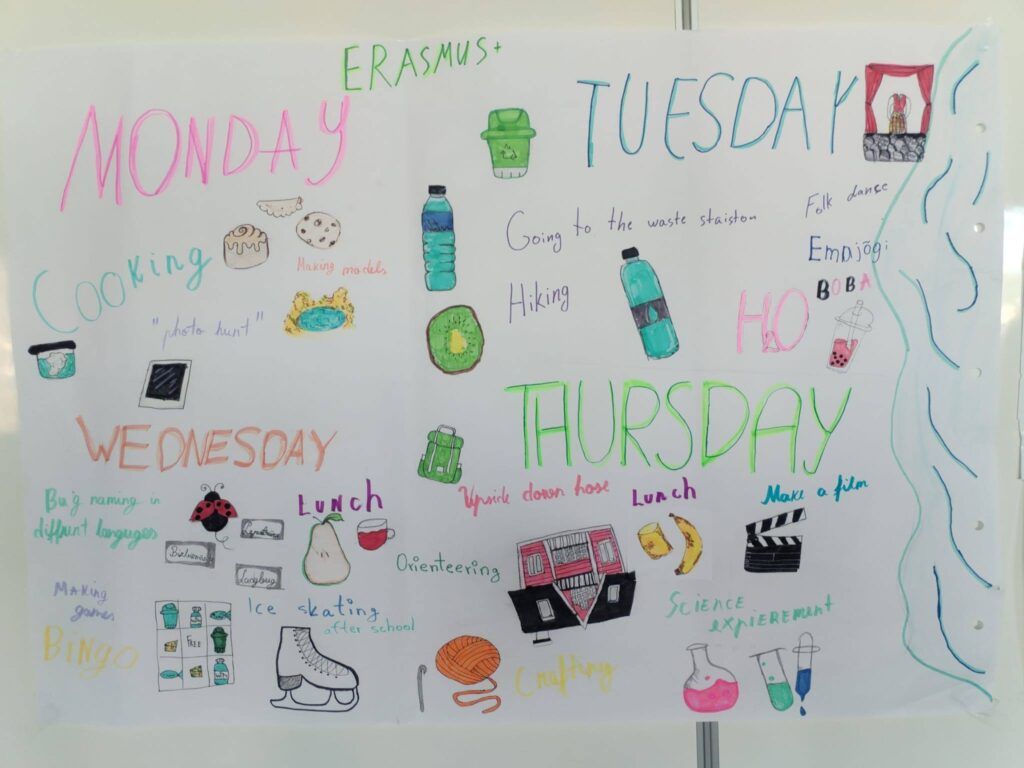 ERASMUS+
MONDAY
Cooking
Making models
"photo hunt"
TUESDAY
Going to the waste staiston
Folk danse
Emajõgi
Hiking
H2O
BOBA
WEDNESDAY
Bug naming in
diffrint languges
LUNCH
Ladybug
Making
games
BINGO
FREE
Ice skating
after school
Orienteering
THURSDAY
Upside down hose
LUNCH
Make a film
Crafting
Science
expierement